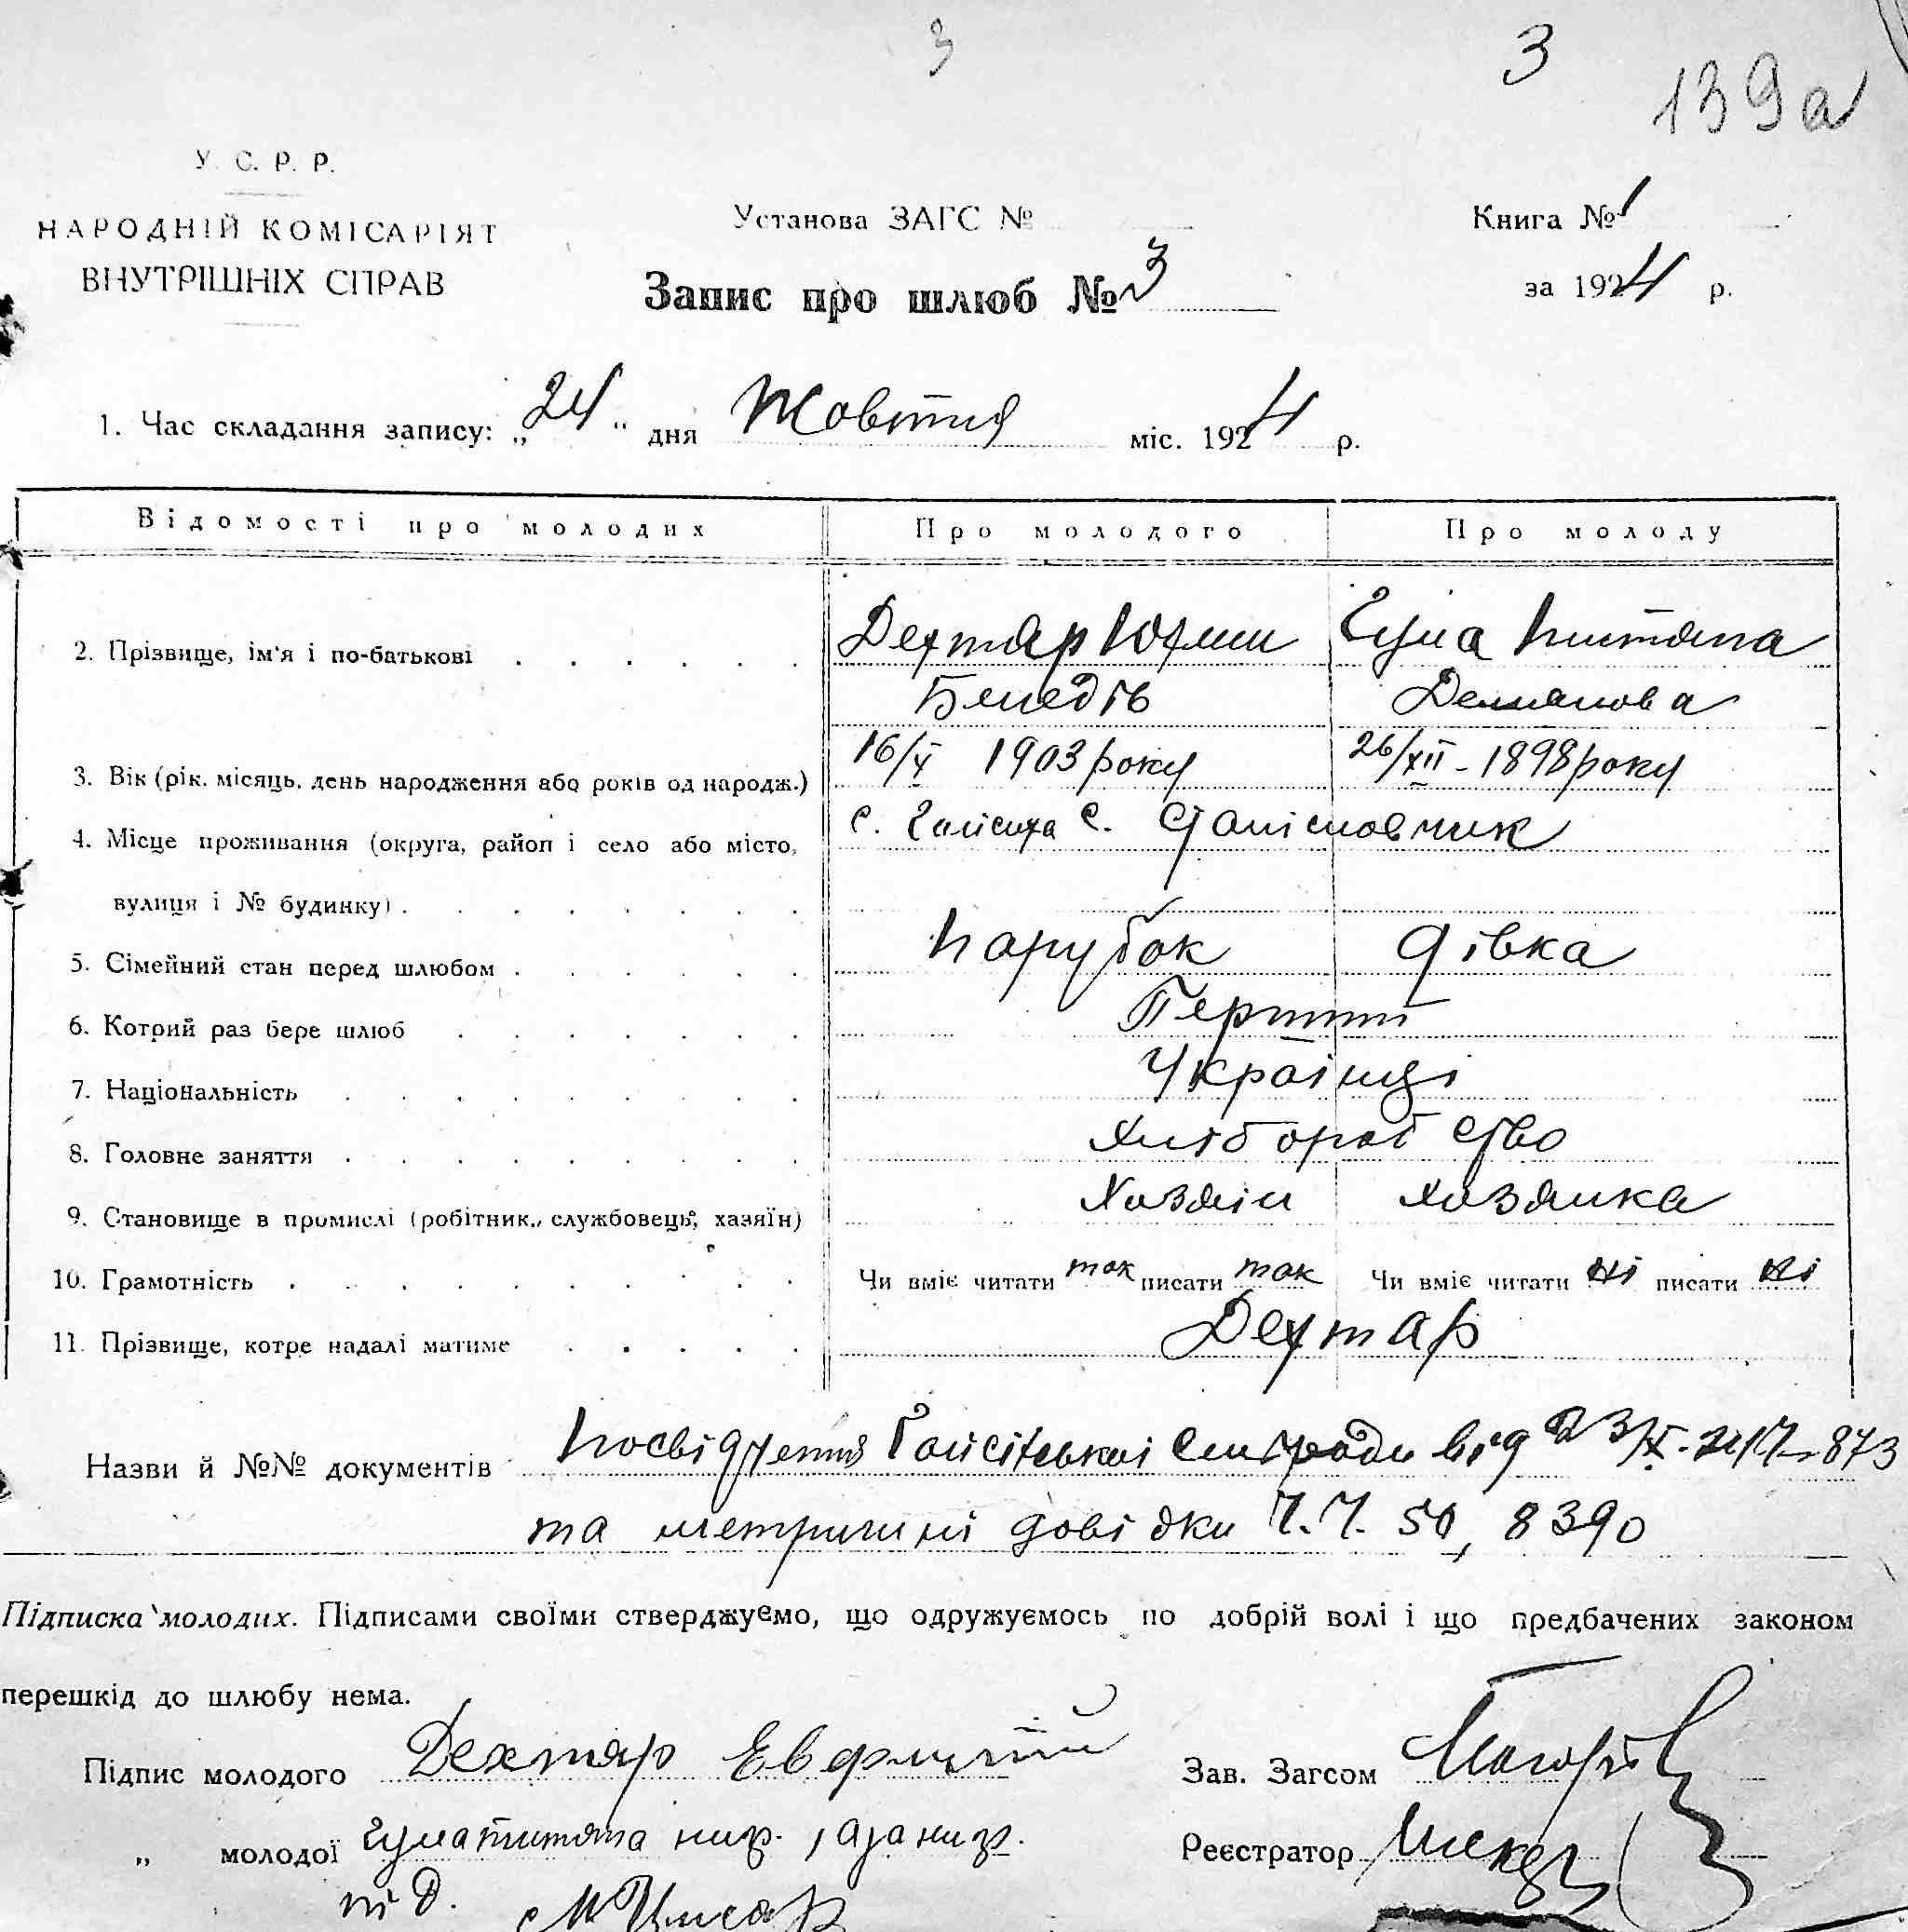 3
3
139а
У. С. Р. Р.
НАРОДНІЙ КОМІСАРІЯТ
ВНУТРІШНІХ СПРАВ
Установа ЗАГС №
Книга № 1
Запис про шлюб № 3
за 1924 р.
1. Час складання запису: „24“ дня Жовтня міс. 1924 р.
Відомості про молодих Про молодого Про молоду
2. Прізвище, ім'я і по-батькові Дехтяр Юхим Гума
Демянова
3. Вік (рік, місяць, день народження або років од народж.) 16/X 1903 року 26/XII - 1898 року
4. Місце проживання (округа, район і село або місто, с. Галисиха с. Станіславчик
вулиця і № будинку)
5. Сімейний стан перед шлюбом Парубок Дівка
6. Котрий раз бере шлюб Перший
7. Національність Українці
8. Головне заняття Хліборобство
9. Становище в промислі (робітник, службовець, хазяїн) Хозяін Хозяйка
10. Грамотність Чи вміє читати так писати так Чи вміє читати ні писати ні
11. Прізвище, котре надалі матиме Дехтяр
Назви й №№ документів Посвідчення від 23/X-24 873
та метричні довідки Ч.Ч. 50, 8390
Підписка молодих. Підписами своїми стверджуємо, що одружуємось по добрій волі і що предбачених законом
перешкід до шлюбу нема.
Підпис молодого Дехтяр
Зав. Загсом
„ молодої Гума
Реєстратор